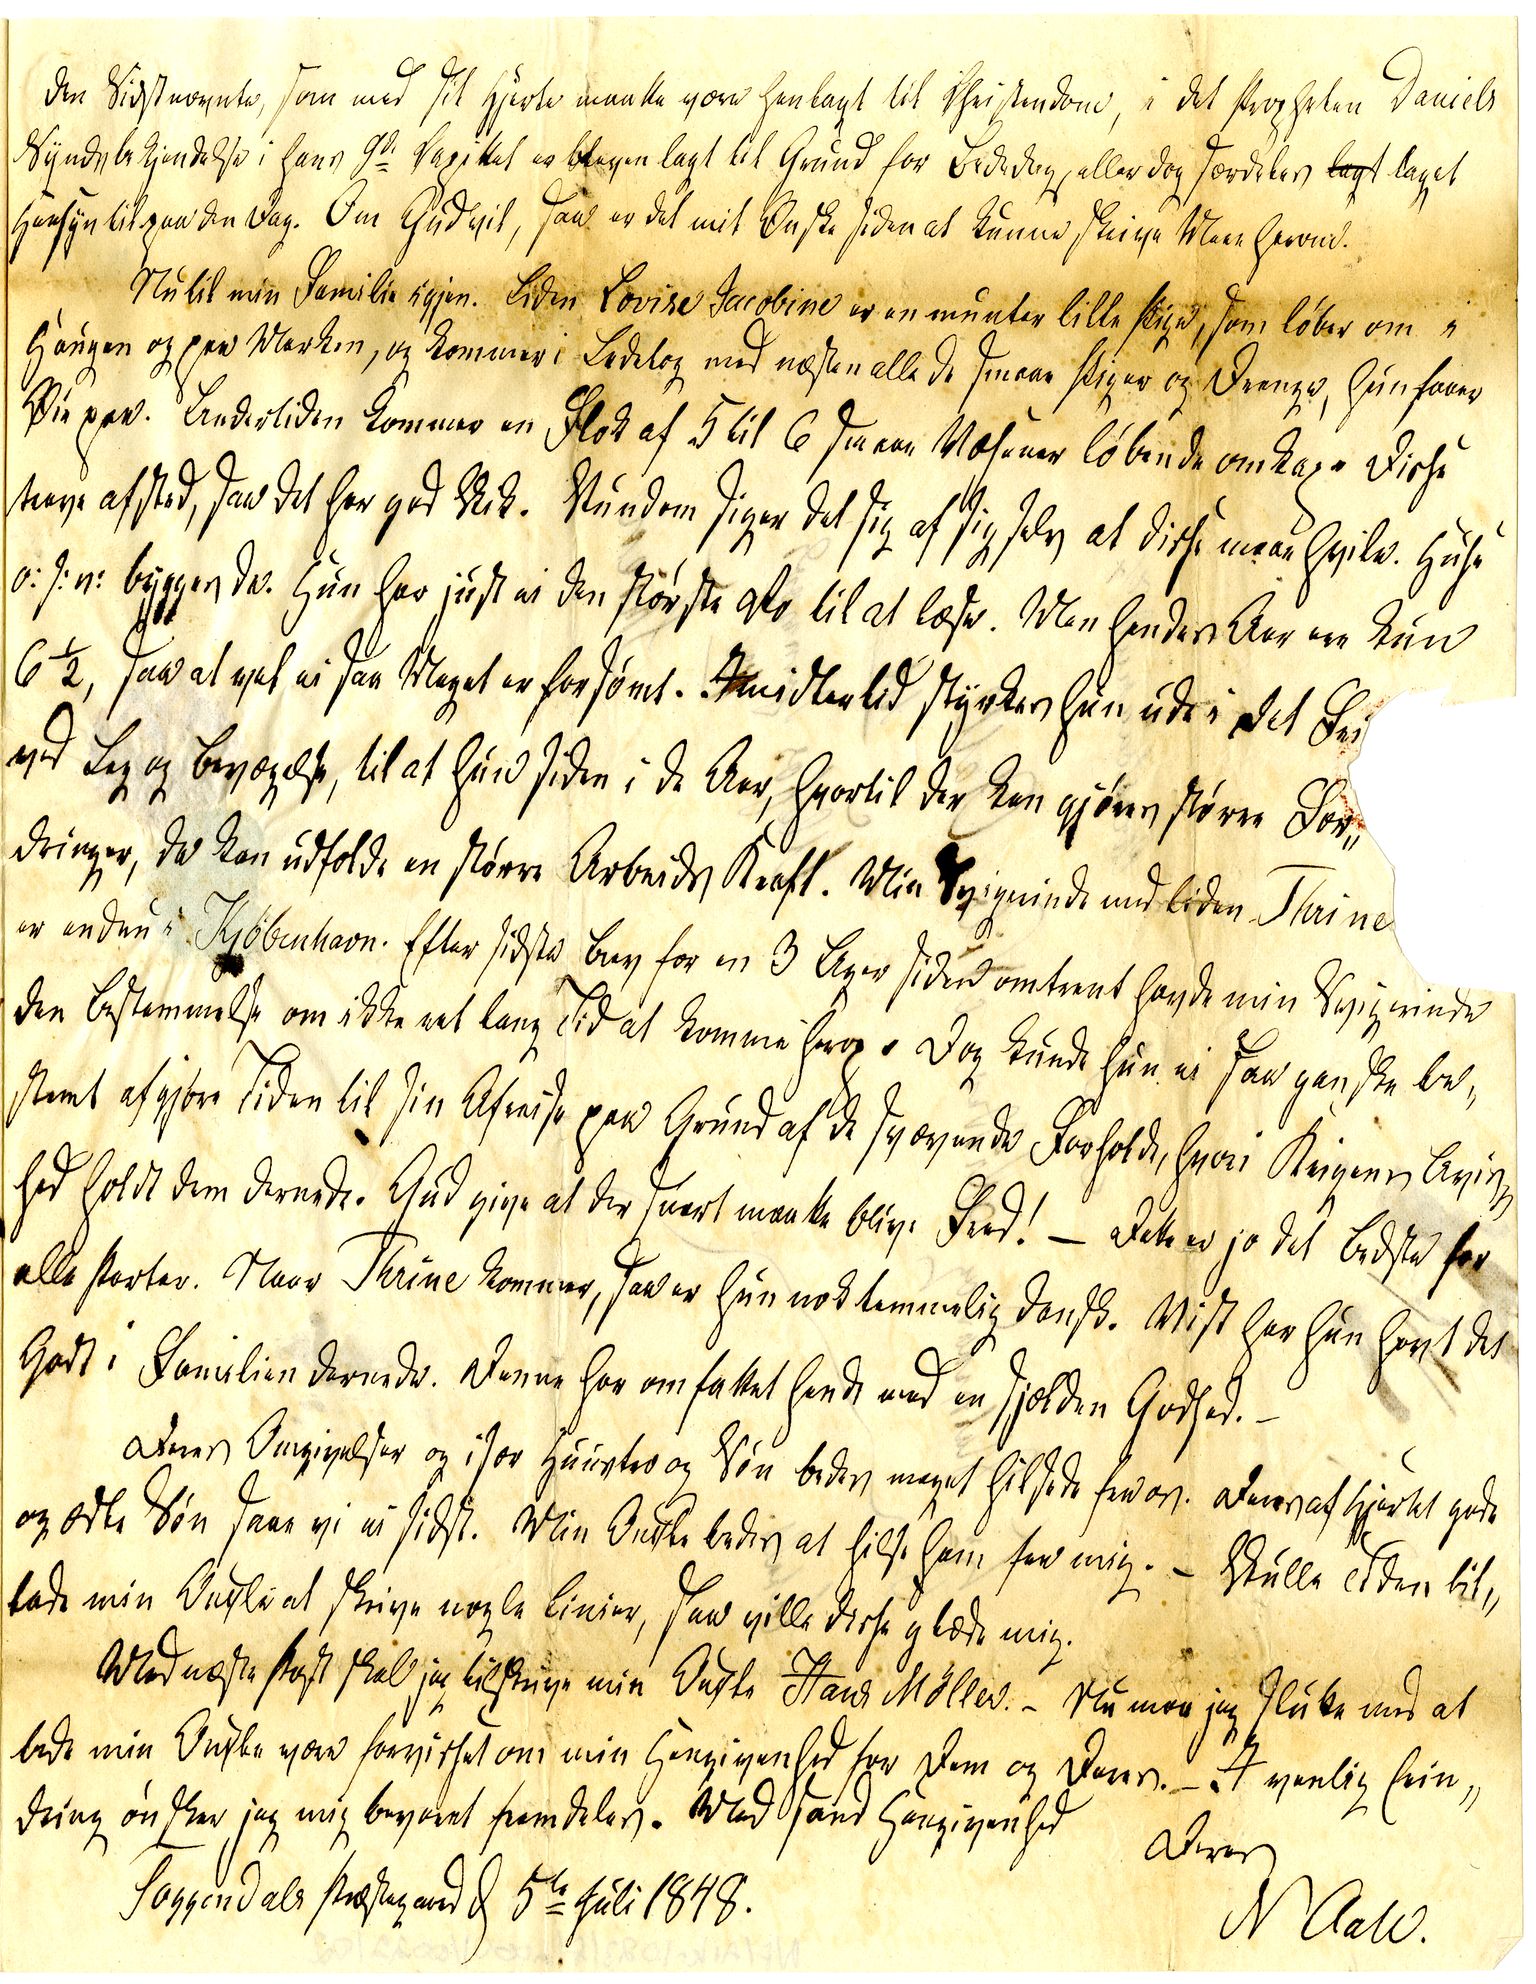 den Sidstnævnte, som med sit Hjerte maatte være henlagt til Christendom, i det Propheten Daniels
Syndsbekjendelse i hans 9de Capittel er bleven lagt til Grund for Bededag, eller dog særdeles lagt taget
Hensyn til paa den Dag. Om Gud vil, saa er det mit Ønske siden at kunne skrive Mere herom.
Nu til min Familie igjen. Liden Lovise Jacobine er en munter lille Pige, som løber om i
Haugen og paa Marken, og kommer i Ledetog med næsten alle de smaae Piger og Drenge, hun faaer
Øie paa. Undertiden kommer en Flok af 5 til 6 smaae Væsener løbende omkap. Disse
trave afsted, saa det har god Skik. Stundom siger det sig af sig selv at disse maae hvile. Huse
o: s: v: bygges da. Hun har just ei den største Ro til at læse. Men hendes Aar ere kun
6 1/2, saa at vel ei saa Meget er forsømt. Imidlertid styrkes hun ude i det Fri
ved Leg og Bevægelse, til at hun siden i de Aar, hvortil der kan gjøres større For„
dringer, da kan udfolde en større Arbeids Kraft. Min Svigerinde med liden Thrine
er endnu i Kjöbenhavn. Efter sidste Brev for en 3 Uger siden omtrent havde min Svigerinde
den Bestemmelse om ikke ret lang Tid at komme herop. Dog kunde hun ei saa ganske be„
stemt afgjøre Tiden til sin Afreise paa Grund af de svævende Forholde, hvori Krigens Uvis„
hed holdt dem dernede. Gud give at der snart maatte blive Fred! – Dette er jo det bedste for
alle Parter. Naar Thrine kommer, saa er hun nok temmelig dansk. Vist har hun havt det
Godt i Familien dernede. Denne har omfattet hende med en sjælden Godhed. –
Deres Omgivelser og især Huustro og Søn bedes meget hilsede fra os. Deres af Hjertet gode
og ædle Søn saae vi ei sidst. Min Onkle bedes at hilse ham fra mig. – Skulle Tiden til„
lade min Onkle at skrive nogle Linier, saa ville disse glæde mig.
Med næste Post skal jeg tilskrive min Onkle Hans Möller. – Nu maa jeg slutte med at
bede min Onkle være forvisset om min Hengivenhed for Dem og Deres. – I venlig Erin„
dring ønsker jeg mig bevaret fremdeles. Med sand Hengivenhed
Deres
Soggendals Præstegaard d 5te Juli 1848.
N Aall.